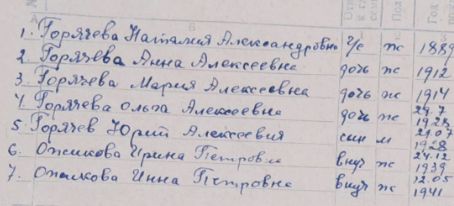 1. Горячева Наталия Александровна г/с ж 1889
2. Горячева Анна Алексеевна дочь ж 1912
3. Горячева Мария Алексеевна дочь ж 1914
4. Горячева Ольга Алексеевна дочь ж 24.7 1923
5. Горячев Юрий Алексеевич сын м 21.07 1928
6. Ожикова Ирина Петровна внуч ж 24.12 1939
7. Ожикова Инна Петровна внуч ж 12.05 1941